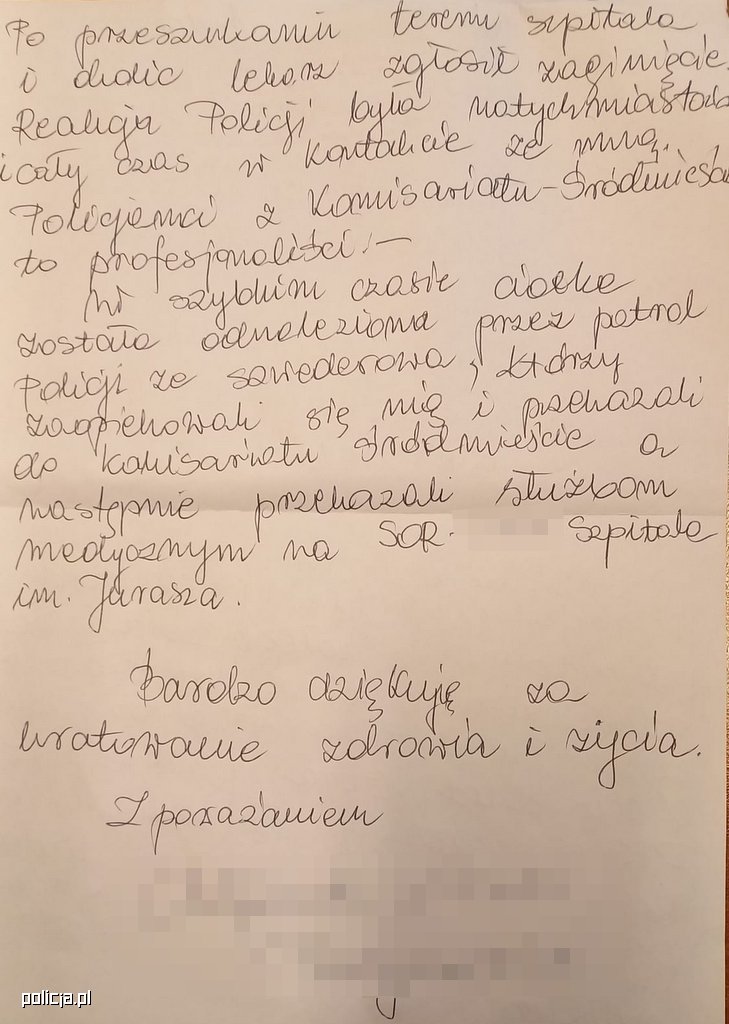 Po przeszukaniu terenu szpitala
i okolic lekarz zgłosił zaginięcie.
Reakcja Policji była natychmiastowa
i cały czas w kontakcie ze mną.
Policjanci z Komisariatu-Śródmieścia
to profesjonaliści!-
W szybkim czasie ciocia
została odnaleziona przez patrol
Policji ze szwederowa, którzy
zaopiekowali się nią i przekazali
do komisariatu śródmieście a
następnie przekazali służbom
medycznym na SOR. Szpitala
im. Jurasza.
Bardzo dziękuję za
uratowanie zdrowia i życia.
Z poważaniem
policja.pl